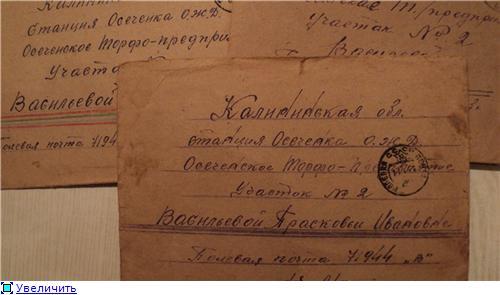 Калининс
станция Осеченка О.Ж.Д.
Осеченское Торфо-предпри
Участок
Васильевой
Полевая почта 71944
Участок № 2
Васильевой
Калининская обл.
станция Осеченка О.Ж.Д.
Осеченское Торфо-Предприятие
Участок № 2
Васильевой Прасковьи Ивановне
Полевая почта 71944 „В"
Увеличить